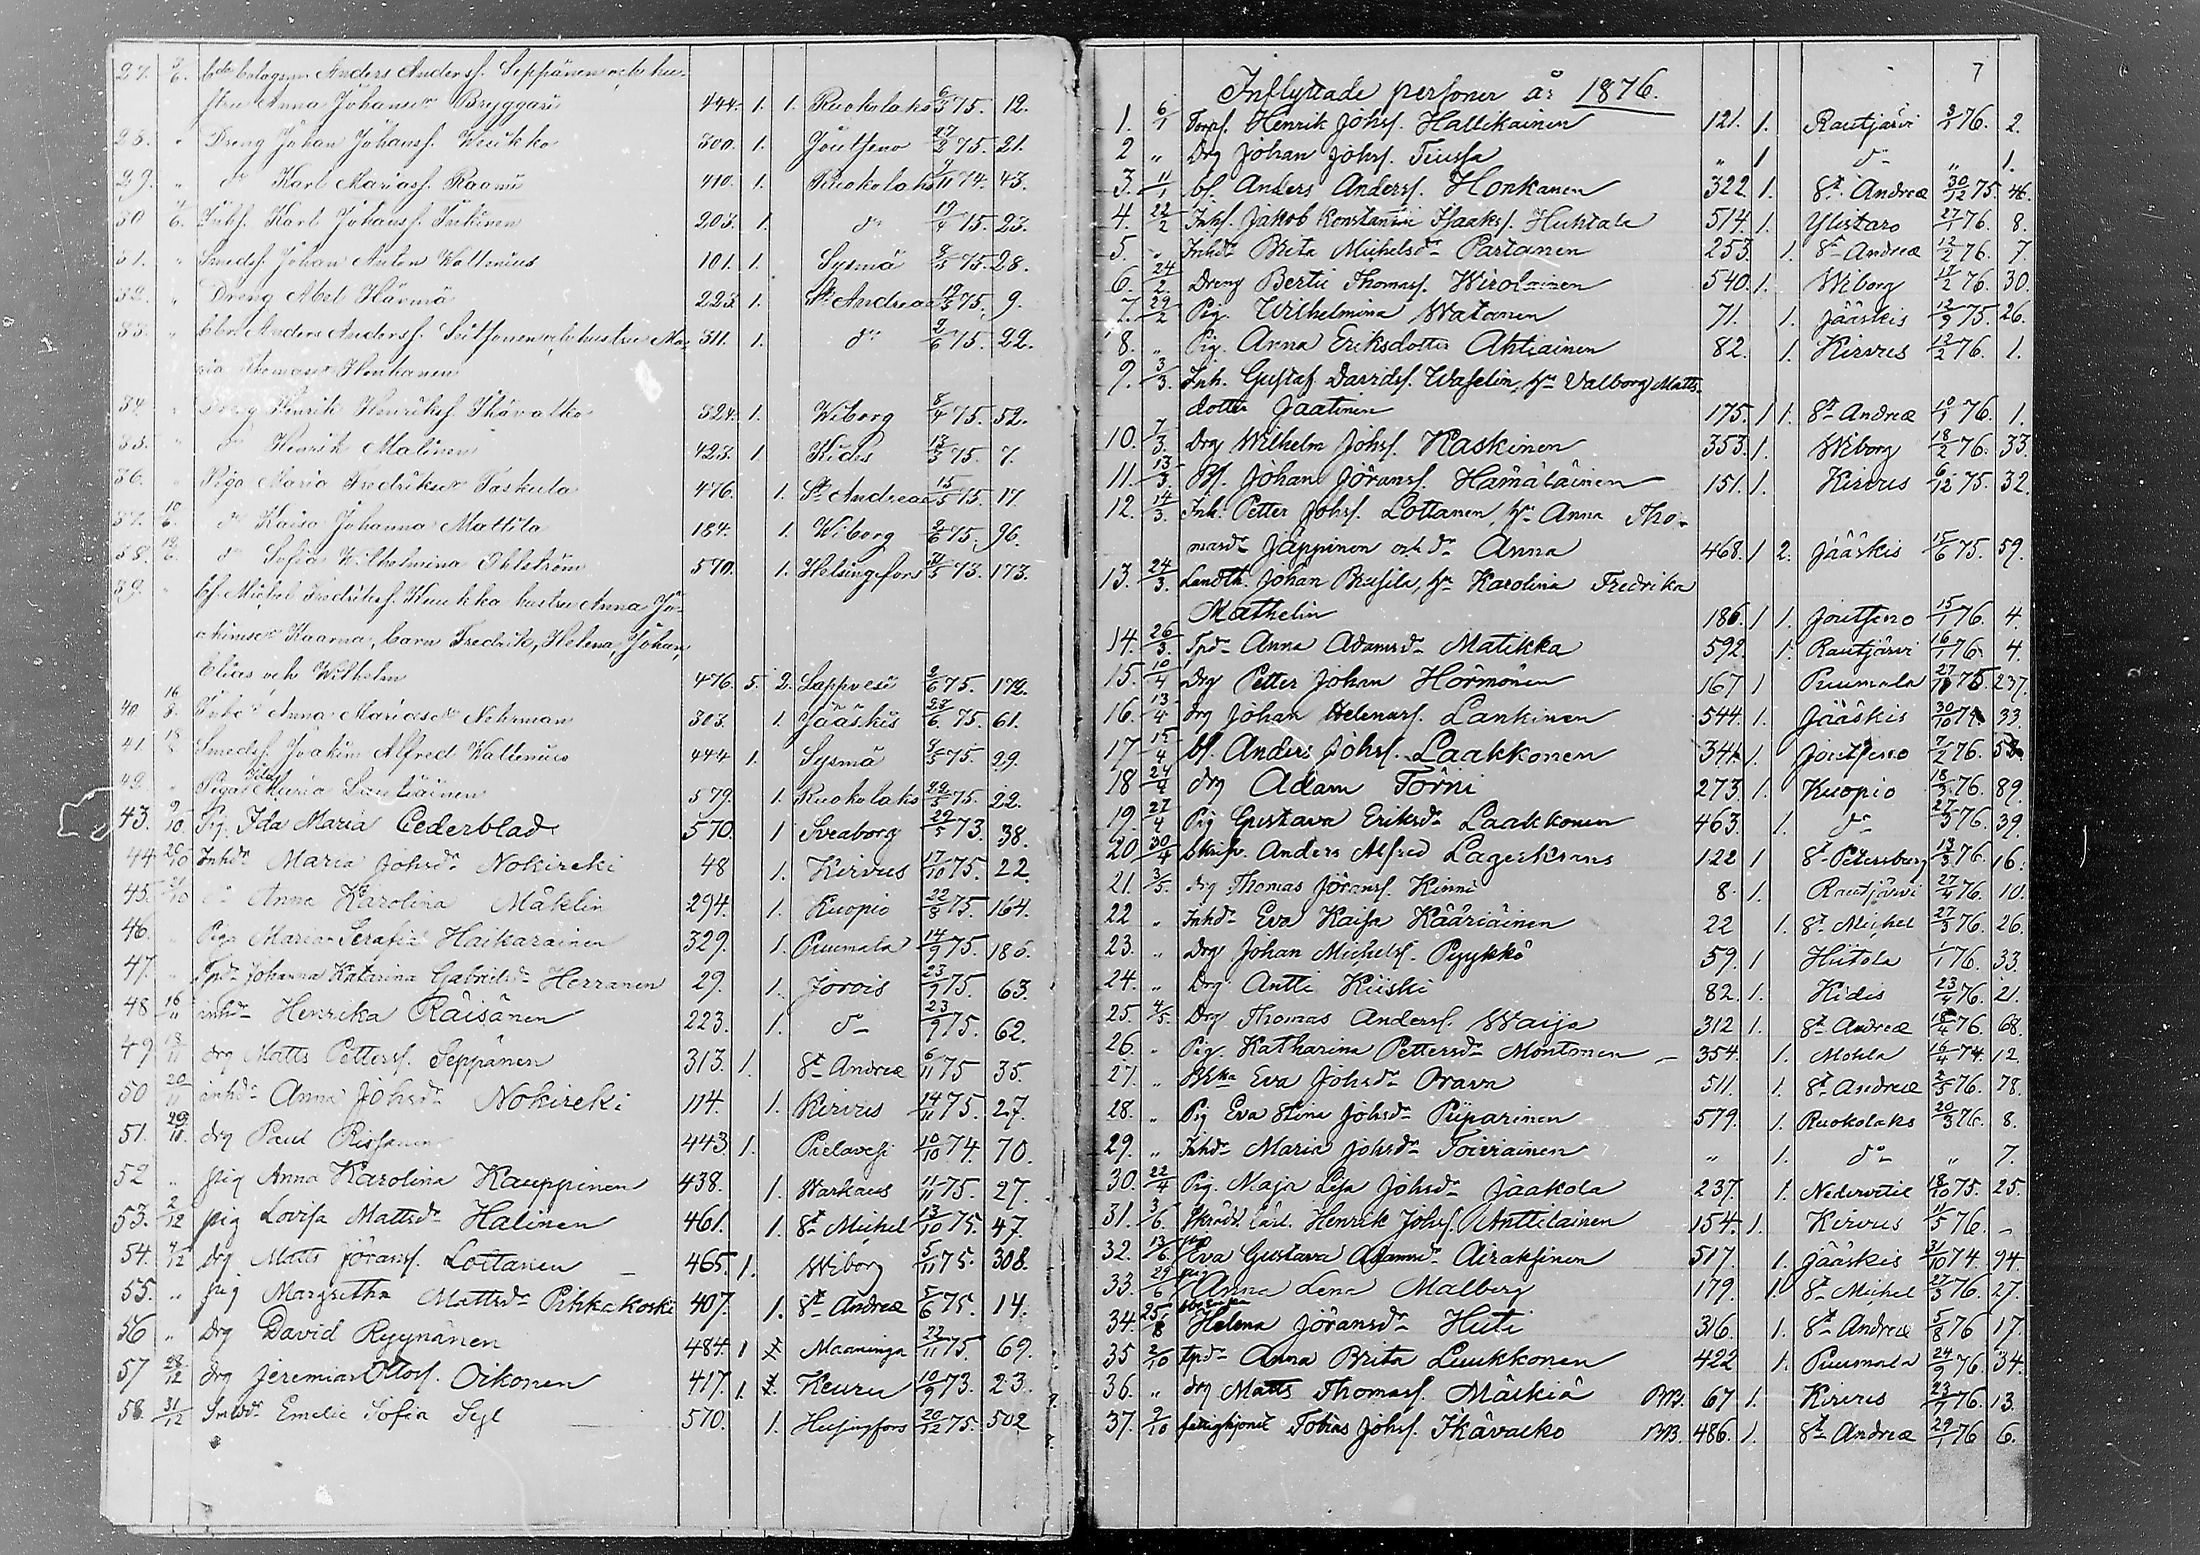 27. 3/6. bde bolagsm Anders Andersf. Seppänen och hu-
stru Anna Johansdr Bryggari 444. 1. 1. Ruokolaks 6/3 75. 12.
28. " Dreng Johan Johansf. Wesikko 300. 1. Joutseno 27/2 75. 21.
29. " do Karl Mariasf. Raami 410. 1. Ruokolaks 7/11 74. 43.
Inhs. Karl Johansf. Inkinen 203. 1. do 19/4 75. 23.
31. " Smedsf. Johan Anton Waltenius 101. 1. Sysmä 8/5 75. 28.
32. " Dreng Abel Härmä 223. 1. St Andreae 19/5 75. 9.
33. " Anders Andersf. Suitsonen och hustru Ma- 311. 1. do 2/6 75. 22.
ria Thomasdr Honkanen
34. " Dreng Henrik Henriksf. Ikävalko 324. 1. Wiborg 8/4 75. 52.
35. " do Henrik Malinen 423. 1. Kides 13/3 75. 7.
36. " Piga Maria Fredriksdr Taskula 476. 1. St Andreae 15/5 75. 17.
37. 10/6. do Kaisa Johanna Mattila 184. 1. Wiborg 2/6 75. 96.
38. 12/6. do Sofia Wilhelmina Ohlström 570. 1. Helsingfors 73. 173.
39. " bf. Michel Fredriksf. Kuukka hustru Anna Jo-
akimsdr Kaarna, barn Fredrik, Helena, Johan,
Elias och Wilhelm 476. 5. 2. Lappvesi 2/6 75. 172.
40. 16/8. Anna Mariasdr Nohrman 303. 1. Jääskis 28/6 75. 61.
41. Smedsf. Joakim Alfred Waltenius 444 1. Sysmä 8/5 75. 29.
42. " Piga Ida Maria Lautiainen 579. 1. Ruokolaks 22/5 75. 22.
43. 9/10. Pig. Ida Maria Cederblad 570. 1 Sveaborg 29/5 73. 38.
44 Inhdr Maria Johsdr Nokireki 48 1. Kirvus 17/10 75. 22.
45. do Anna Karolina Mäklin 294. 1. Kuopio 22/8 75. 164.
46. " Piga Maria Serafia Haikarainen 329. 1. Puumala 14/9 75. 186.
47. " Tpdr Johanna Katarina Gabrielsdr Herranen 29. 1. Jorois 23/9 75. 63.
48 16/11 inhdr Henrika Räisänen 223. 1. do 23/9 75. 62.
49 18/11 drg Matts Pettersf. Seppänen 313. 1. St Andreæ 6/11 75 35.
50 20/11 inhdr Anna Johsdr Nokireki 114. 1. Kirvus 14/11 75. 27.
51. 29/11. drg Paul Rissanen 443 1. Pielavesi 10/10 74. 70.
52 " pig Anna Karolina Kauppinen 438. 1. Warkaus 11/11 75. 27.
53. 2/12 pig Lovisa Mattsdr Halinen 461. 1. St Michel 13/10 75. 47.
54. 4/12 drg Matts Jöransf. Lottanen 465. 1. Wiborg 5/11 75. 308.
55. " pig Margretha Mattsdr Pihkakoski 407. 1. St Andreæ 5/6 75. 14.
56 " Drg David Ryynänen 484. 1 Maaninga 22/11 75. 69.
57 28/12 drg Jeremias Ottosf. Oikonen 417. 1. Keuru 10/9 73. 23.
58. 31/12 Smeddr Emelie Sofia Segl 570. 1. Helsingfors 20/12 75. 502
7
Inflyttade personer år 1876.
1. 6/1 Torps. Henrik Johsf. Hallikainen 121. 1. Rautjärvi 3/1 76. 2.
2 " Drg Johan Johsf. Tiussa " 1 do " 1.
3. 11/1 bf. Anders Andersf. Honkanen 322 1. St Andreæ 30/12 75. 46.
4. 22/2 Inhs. Jakob Konstantin Isaaksf. Huhtala 514. 1. Ylistaro 27/1 76. 8.
5. " Inhdr Brita Michelsdr Partanen 253. 1. St Andreæ 12/2 76. 7.
6. 24/2. Dreng Bertil Thomasf. Wirolainen 540. 1. Wiborg 17/2 76. 30.
7. 29/2 Pig. Wilhelmina Watanen 71. 1. Jääskis 12/9 75. 26.
8. " Pig. Anna Eriksdotter Ahtiainen 82. 1. Kirvus 12/2 76. 1.
9. 3/3. Inh. Gustaf Davidsf. Waselin, hu Valborg Matts-
dotter Jaatinen 175. 1 1. St Andreæ 10/1 76. 1.
10. 7/3. Drg Wilhelm Johsf. Kaskinen 353. 1. Wiborg 18/2 76. 33.
11. 13/3. Bf. Johan Jöransf. Hämäläinen 151. 1. Kirvus 6/12 75. 32.
12. 14/3. Inh. Petter Johsf. Lottanen, hu Anna Tho-
masdr Jäppinen och dr Anna 468. 1 2. Jääskis 15/6 75. 59.
13. 24/3. Landth. Johan Brusila, hu Karolina Fredrika
Mathelin 186. 1 1. Joutseno 15/1 76. 4.
14. 26/3. Tpdr Anna Adamsdr Matikka 592. 1. Rautjärvi 16/1 76. 4.
15. 10/4 Drg Petter Johan Hörmönen 167 1 Puumala 75. 237.
16. 13/4 drg Johan Helenasf. Lankinen 544. 1. Jääskis 30/10 33.
17 15/4 bf. Anders Johsf. Laakkonen 341. 1. Joutseno 7/2 76.
18 24/4 drg Adam Törni 273. 1. Kuopio 18/3 76. 89.
19. 27/4 Pig Gustava Eriksdr Laakkonen 463. 1. do 27/3 76. 39.
20 30/4 Skrifv. Anders Alfred Lagerkrans 122 1 St Petersburg 13/3 76. 16.
21. 3/5. drg Thomas Jöransf. Kinni 8. 1. Rautjärvi 27/4 76. 10.
22 " Inhdr Eva Kaisa Kääriäinen 22 1. St Michel 27/3 76. 26.
23. " Drg Johan Michelsf. Pyykkö 59. 1 Hiitola 1/1 76. 33.
24. " Drg Antti Kiiski 82. 1. Kides 23/4 76. 21.
25. 4/5. Drg Thomas Andersf. Waija 312 1. St Andreæ 18/4 76. 68.
26. " Pig. Katharina Pettersdr Montonen 354. 1. Mohla 16/4 74. 12.
27. " Eva Johsdr Orava 511. 1. St Andreæ 2/5 76. 78.
28. " Pig Eva Stina Johsdr Piiparinen 579. 1. Ruokolaks 20/3 76. 8.
29. " Inhdr Maria Johsdr Toiviainen " 1. do " 7.
30. 22/4 Pig. Maja Lisa Johsdr Jaakola 237. 1. Nedervetil 18/10 75. 25.
31. 3/6. Skrädd. lärl. Henrik Johsf. Anttilainen 154. 1. Kirvus 11/5 76. -
32. 13/6. Eva Gustava Adamsdr Airaksinen 517. 1. Jääskis 31/10 74. 94.
33. 29/6 pig Anna Lena Malberg 179. 1. St Michel 27/3 76. 27.
34. 25/8 Helena Jöransdr Huti 316. 1. St Andreæ 5/8 76 17.
35 2/10 tpdr Anna Brita Luukkonen 422 1. Puumala 24/9 76 34.
36. " drg Matts Thomasf. Mäskiä BB. 67 1. Kirvus 23/9 76. 13.
37. 9/10 fattighjonet Tobias Johsf. Ikävalko BB. 486. 1. St Andreæ 29/1 76 6.